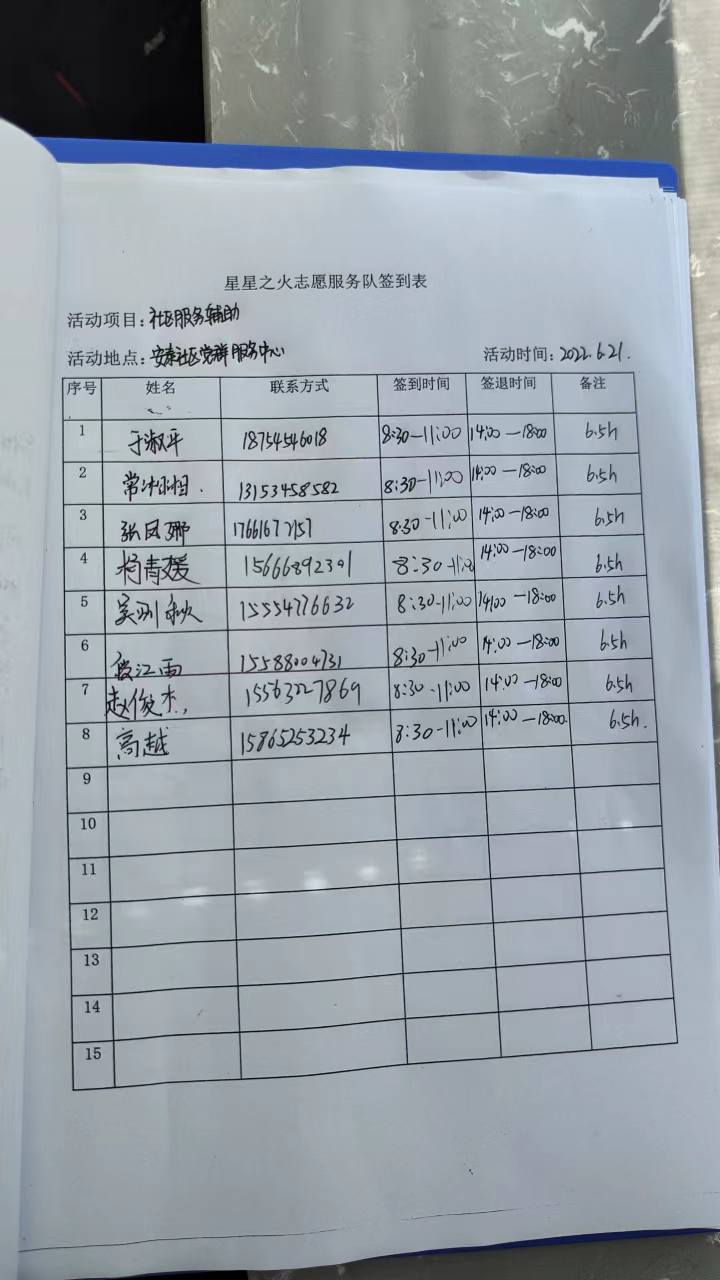 星星之火志愿服务队签到表
活动项目：社区服务辅助
活动地点：安泰社区党群服务中心 活动时间：2022.6.21.
序号 姓名 联系方式 签到时间 签退时间 备注
1 于淑平 18754546018 8:30-11:00 14:00-18:00 6.5h
2 13153458582 8:30-11:00 14:00-18:00 6.5h
3 张凤娜 17661672157 8:30-11:00 14:00-18:00 6.5h
4 杨青媛 15666892391 8:30-11:00 14:00-18:00 6.5h
5 15554776632 8:30-11:00 14:00-18:00 6.5h
6 段江雨 15588004731 8:30-11:00 14:00-18:00 6.5h
7 赵俊杰 15563227869 8:30-11:00 14:00-18:00 6.5h
8 高越 15865253234 8:30-11:00 14:00-18:00. 6.5h.
9
10
11
12
13
14
15